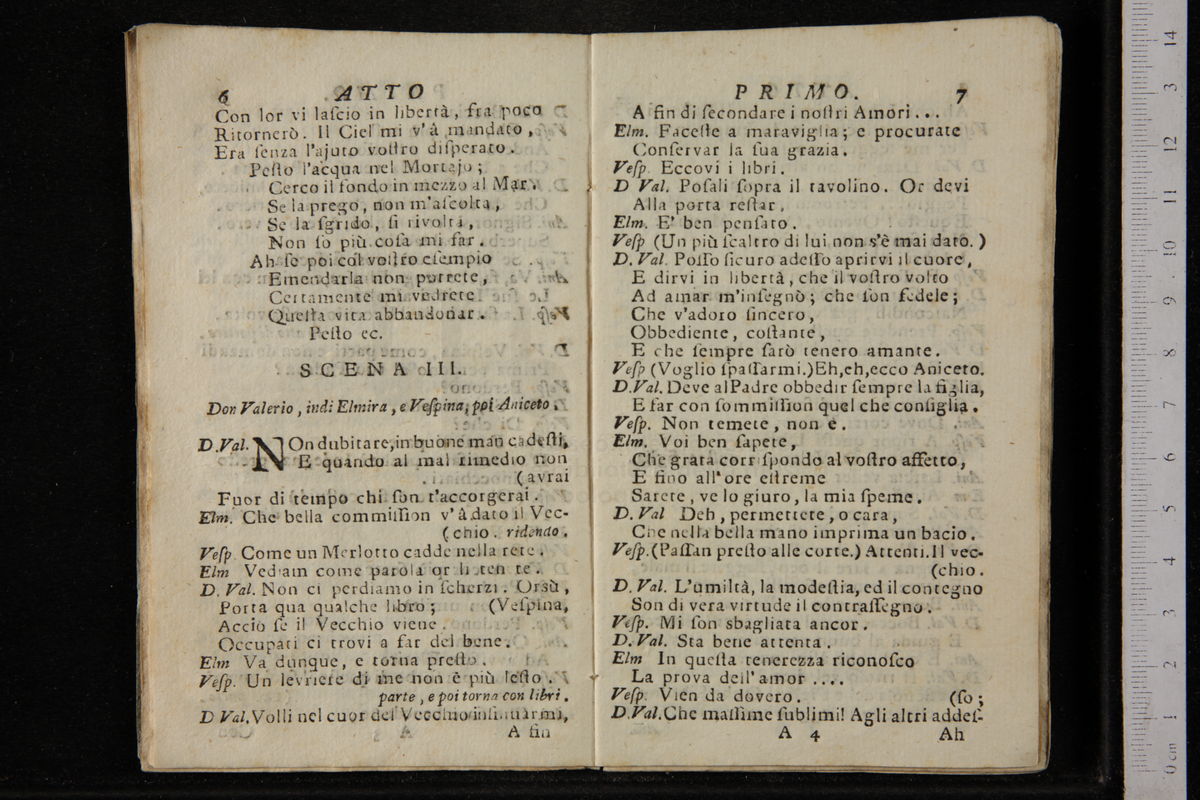 6 ATTO
Con lor vi laſcio in libertà, fra poco
Ritornerò. Il Ciel mi v'à mandato,
Era ſenza l'ajuto voſtro diſperato.
Peſto l'acqua nel Mortajo;
Cerco il fondo in mezzo al Mar.
Se la prego, non m'aſcolta,
Se la ſgrido, ſi rivolta,
Non ſo più coſa mi far.
Ah ſe poi col voſtro eſempio
Emendarla non potrete,
Certamente mi vedrete
Queſta vita abbandonar.
Peſto ec.
SCENA III.
Don Valerio, indi Elmira, e Veſpina, poi Aniceto.
D.Val. NOn dubitare, in buone man cadeſti,
E quando al mal rimedio non
(avrai
Fuor di tempo chi ſon t'accorgerai.
Elm. Che bella commiſſion v'à dato il Vec-
(chio. ridendo.
Veſp Come un Merlotto cadde nella rete.
Elm Vediam come parola or li ten te.
D. Val. Non ci perdiamo in ſcherzi. Orsù,
Porta qua qualche libro; (Veſpina,
Acciò ſe il Vecchio viene.
Occupati ci trovi a far del bene.
Elm Va dunque, e torna preſto.
Veſp. Un levriere di me non è più leſto.
parte, e poi torna con libri.
D Val. Volli nel cuor del Vecchio inſinuarmi,
A fin
PRIMO. 7
A fin di ſecondare i noſtri Amori...
Elm. Faceſte a maraviglia; e procurate
Conſervar la ſua grazia.
Veſp. Eccovi i libri.
D Val. Poſali ſopra il tavolino. Or devi
Alla porta reſtar.
Elm. E' ben penſato.
Veſp (Un più ſcaltro di lui non s'è mai dato.)
D. Val. Poſſo ſicuro adeſſo aprirvi il cuore,
E dirvi in libertà, che il voſtro volto
Ad amar m'inſegnò; che ſon fedele;
Che v'adoro ſincero,
Obbediente, coſtante,
E che ſempre ſarò tenero amante.
Veſp (Voglio ſpaſſarmi.) Eh, eh, ecco Aniceto.
D.Val. Deve al Padre obbedir ſempre la figlia,
E far con ſommiſſion quel che conſiglia.
Veſp. Non temete, non è.
Elm. Voi ben ſapete,
Che grata corriſpondo al voſtro affetto,
E fino all'ore eſtreme
Sarete, ve lo giuro, la mia ſpeme.
D. Val Deh, permettete, o cara,
Che nella bella mano imprima un bacio.
Veſp. (Paſſan preſto alle corte.) Attenti. Il vec-
(chio.
D. Val. L'umiltà, la modeſtia, ed il contegno
Son di vera virtude il contraſſegno.
Veſp. Mi ſon sbagliata ancor.
D. Val. Sta bene attenta.
Elm In queſta tenerezza riconoſco
La prova dell'amor....
Veſp. Vien da dovero. (ſo;
D.Val. Che maſſime ſublimi! Agli altri addeſ-
A 4 Ah